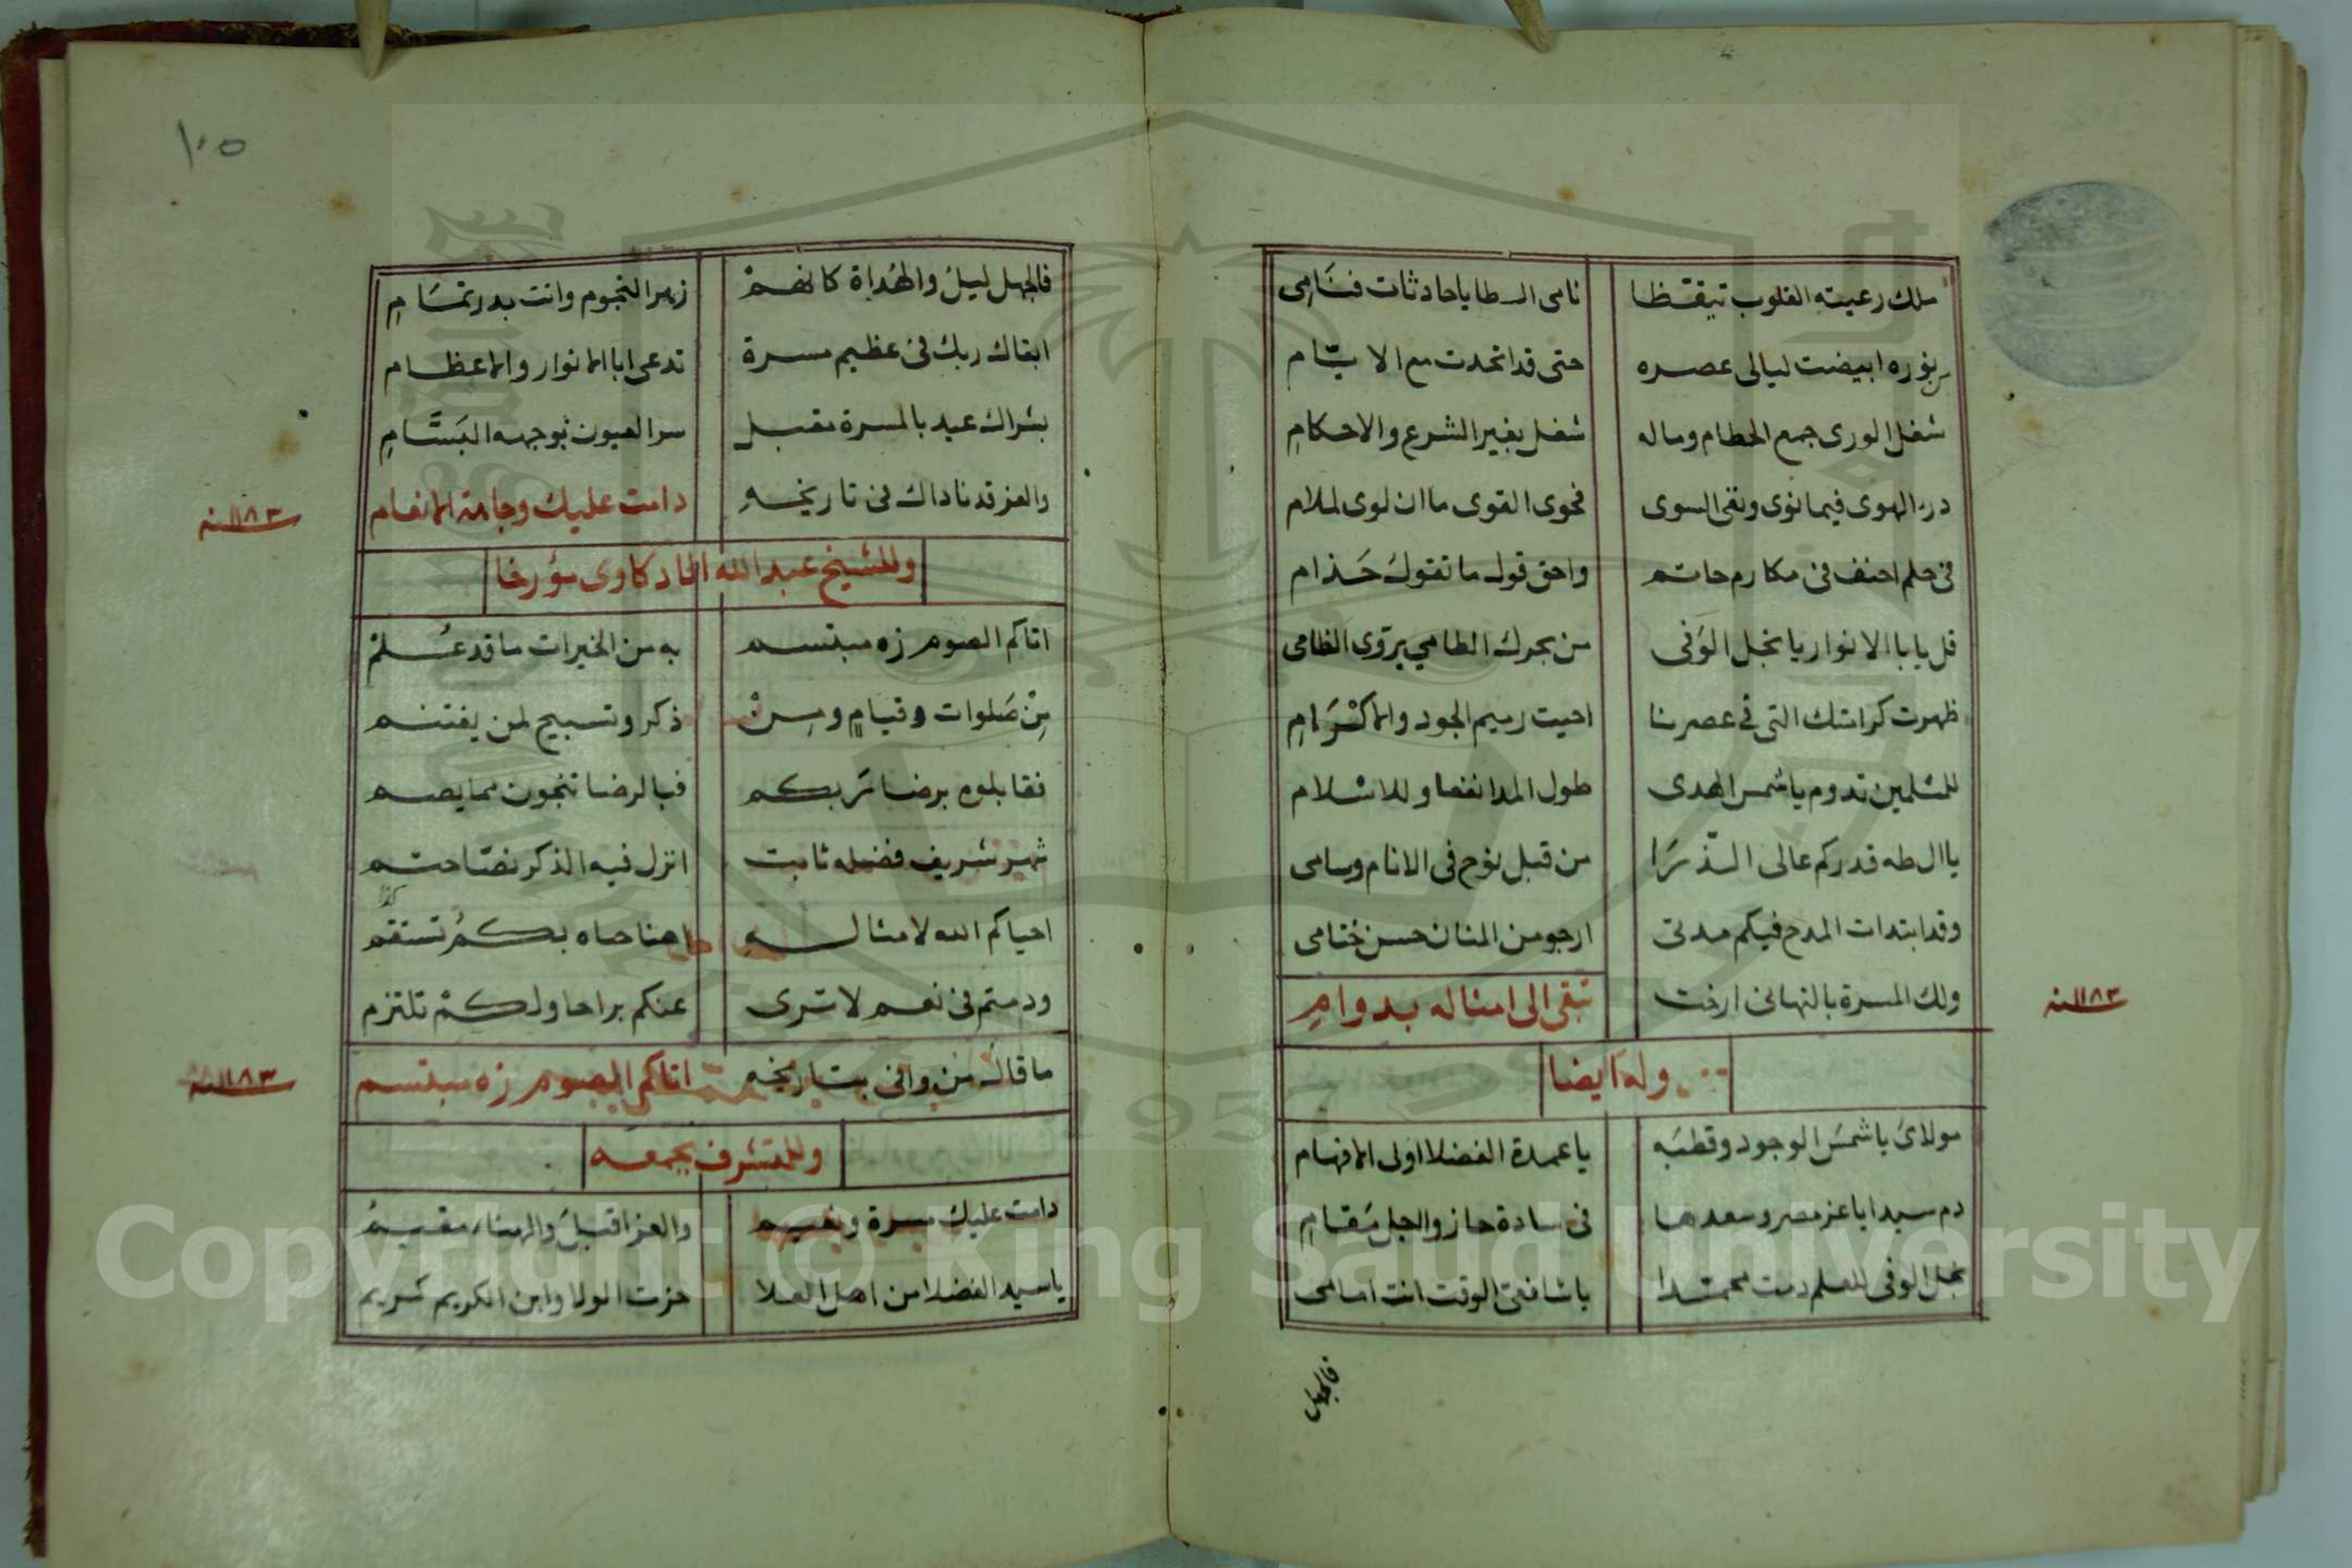 ملك رعيته القلوب تيقظا نامى السطا يا حادثات فنامى
بنوره ابيضت ليالى عصره حتى قد اتحدت مع الايام
شغل الورى جمع الحطام وماله شغل بغير الشرع والاحكام
درء الهوى فيما نوى ونفى السوى فحوى القوى ما ان لوى لملام
فى حلم احنف فى مكارم حاتم واحق قول ما تقول حذام
قل يا ابا الانوار يا نجل الوفى من بحرك الطامي يروى الظامى
ظهرت كرامتك التى فى عصرنا احيت رميم الجود والاكرام
للمسلمين تدوم يا شمس الهدى طول المدا نفعا وللاسلام
يا ال طه قدركم عالى الذرا من قبل نوح فى الانام وسامى
وقد ابتدات المدح فيكم مدتى ارجو من المنان حسن ختامى
ولك المسرة بالتهانى ارخت تبقى الى امثاله بدوام
١١٨٣ سنه
وله ايضا
مولاى يا شمس الوجود وقطبه يا عمدة الفضلا اولى الافهام
دم سيدا يا عز مصر وسعدها فى سادة حازوا لجل مقام
نجل الوفى للعلم دمت محمدا يا شافعى الوقت انت امامى
فالجهل
١٠٥
فالجهل ليل والهداة كانهم زهر النجوم وانت بدر تمام
ابقاك ربك فى عظيم مسرة تدعى ابا الانوار والاعظام
بشراك عيد بالمسرة مقبل سر العيون بوجهه البسام
والعز قد ناداك فى تاريخه دامت عليك وجاهة الانعام
١١٨٣ سنه
وللشيخ عبد الله الادكاوى مؤرخا
اتاكم الصوم زه مبتسم به من الخيرات ما قد علم
من صلوات وقيام ومن ذكر وتسبيح لمن يغتنم
فقابلوه برضا ربكم فبالرضا تنجون مما يصم
شهر شريف فضله ثابت انزل فيه الذكر نصا حتم
احياكم الله لامثاله اهنا حياه بكم تستقم
ودمتم فى نعم لا ترى عنكم براحا ولكم تلتزم
ما قال من وافى بتاريخه اتاكم الصوم زه مبتسم
١١٨٣ سنه
وللمتشرف بجمعه
دامت عليك مسرة ونعيم والعز اقبل والهناء مقيم
يا سيد الفضلا من اهل العلا حزت الولا وابن الكريم كريم
Copyright © King Saud University
1957